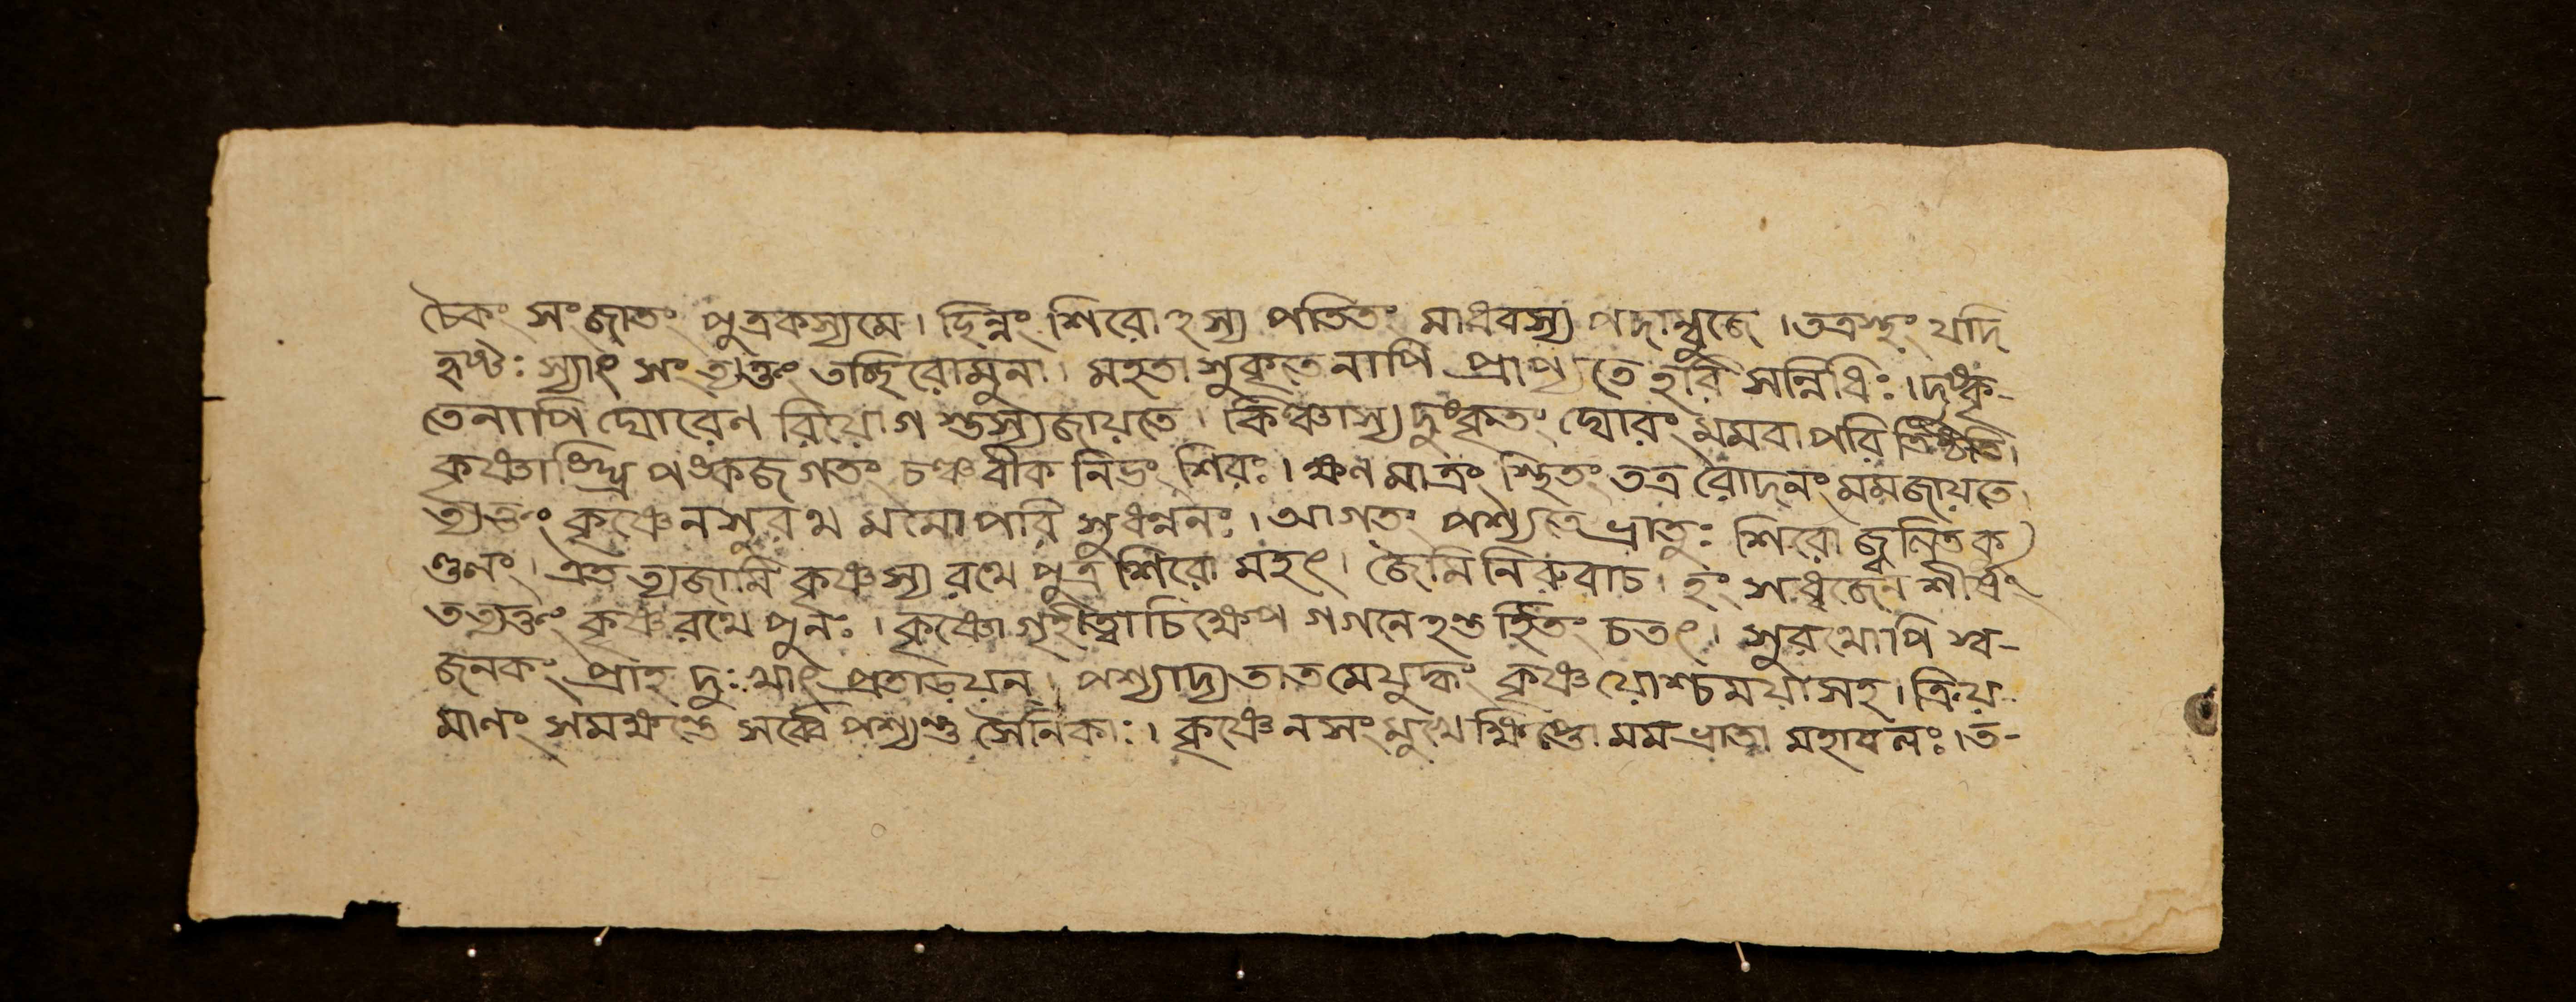 চৈকং সংজাতং পুত্রকস্যমে। ছিন্নং শিরোঽস্য পতিতং মাধবস্য পদাম্বুজে। তত্রস্থং যদি
হৃষ্টঃ স্যাং সংত্যক্তং তচ্ছিরোমুনা। মহতা সুকৃতেনাপি প্রাপ্যতে হরি সন্নিধিঃ। দুষ্কৃ-
তেনাপি ঘোরেণ বিয়োগ স্তস্যজায়তে। কিঞ্চাস্য দুষ্কৃতং ঘোরং মমবা পরি তিষ্ঠতি।
কৃষ্ণাঙ্ঘ্রি পঙ্কজ গতং চঞ্চরীক নিভং শিরঃ। ক্ষণ মাত্রং স্থিতং তত্র রোদনং মমজায়তে।
ত্যক্তং কৃষ্ণেন সুরথ মমোপরি সুধন্বনঃ। আগতং পশ্যতে ভ্রাতুঃ শিরো জ্বলিত কু
ণ্ডলং। এতত্ত্যজামি কৃষ্ণস্য রথে পুত্র শিরো মহৎ। জৈমিনিরুবাচ। হং সধ্বজেন শীর্ষং
তত্যক্তং কৃষ্ণ রথে পুনঃ। কৃষ্ণো গৃহীত্বা চিক্ষেপ গগনে চতৎ। সুরথোপি স্ব-
জনকং প্রাহ দুঃখাৎ প্রতাড়য়ন্। পশ্যাদ্য তাতমে যুদ্ধং কৃষ্ণয়োশ্চ ময়া সহ। ক্রিয়
মাণং সমক্ষন্তে সর্ব্বে পশ্যন্তু সৈনিকাঃ। কৃষ্ণেন সংমুখে ক্ষিপ্তো মম ভ্রাতা মহাবলঃ। ত-